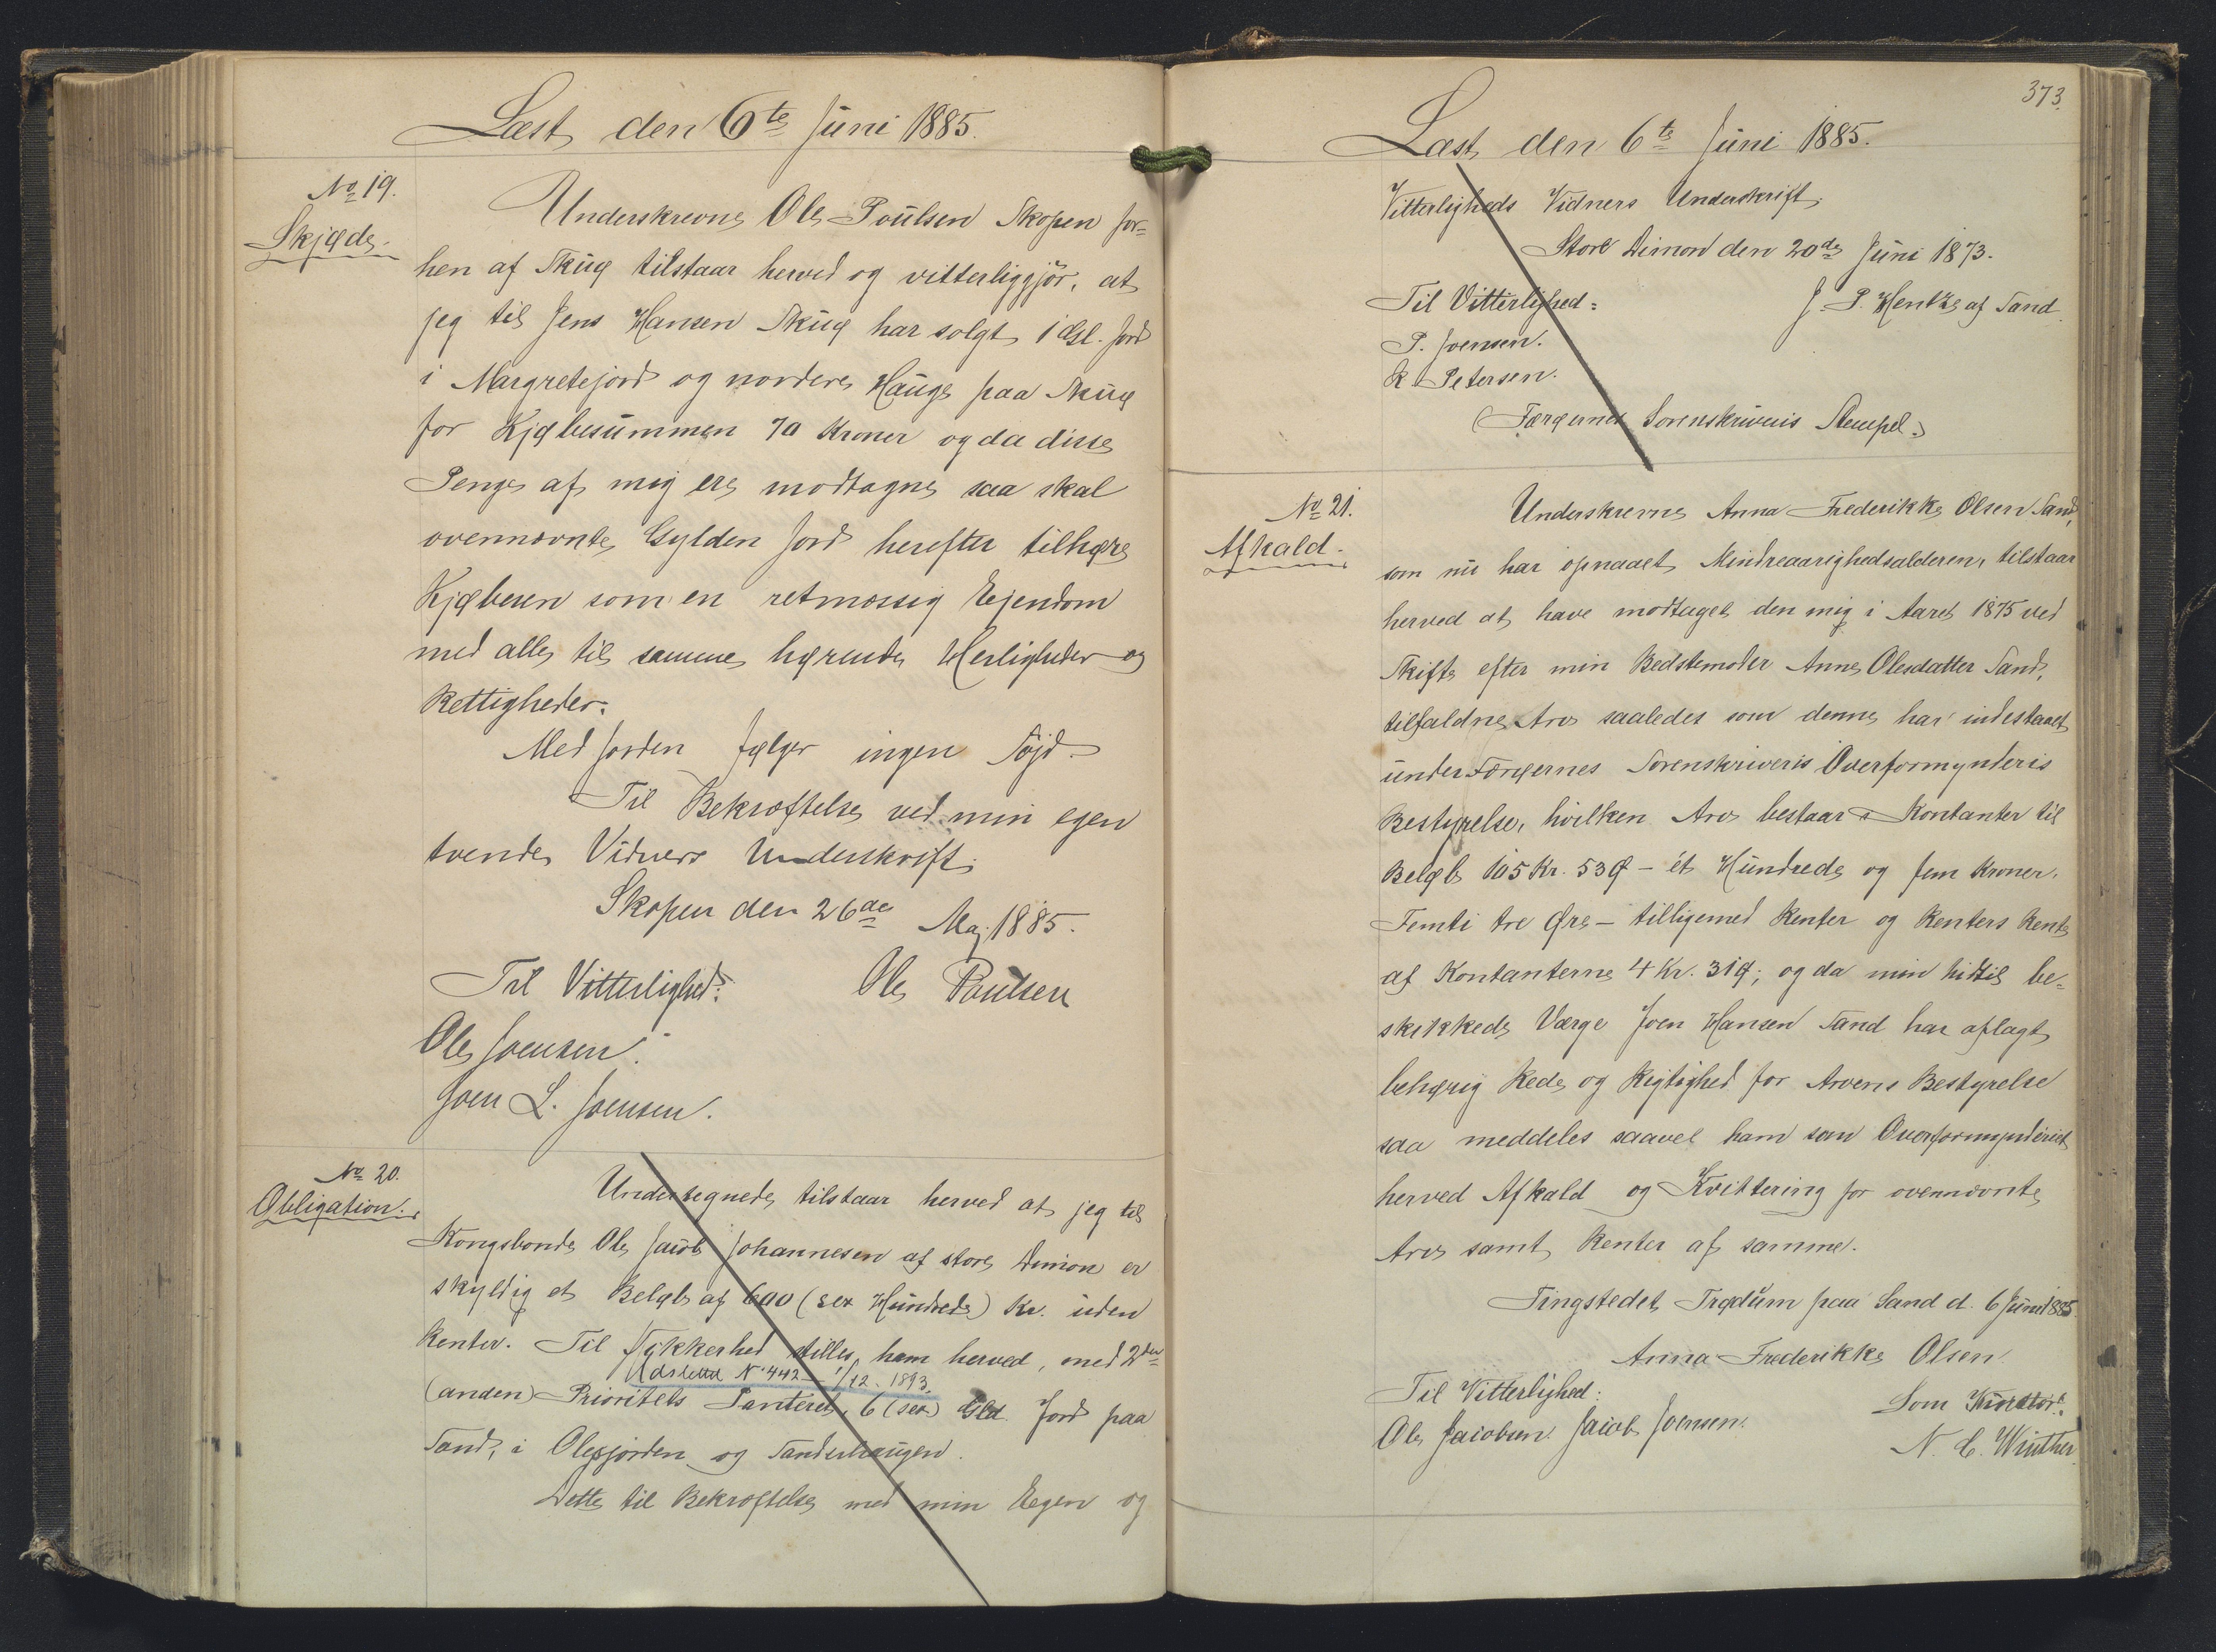 Læst den 6te Juni 1885.
No 19.
Skjøde.
Underskrevne Ole Poulsen Skopen for=
hen af Skuø tilstaar herved og vitterliggjör, at
jeg til Jens Hansen Skuø har solgt 1 Gl. Jord
i Margretejord og nordere Hauge paa Skuø
for Kjøbesummen 70 Kroner og da disse
Penge af mig ere modtagne saa skal
ovennævnte Gylden Jord herefter tilhøre
Kjøberen som en retmæssig Ejendom
med alle til samme hørende Herligheder og
Rettigheder.
Med Jorden følger ingen Söjd.
Til Bekræftelse ved min egen
tvende Vidners Underskrift.
Skopen den 26de Maj 1885.
Til Vitterlighed: Ole Poulsen
Ole Joensen.
Joen L. Joensen.
No 20.
Obligation.
Undertegnede tilstaar herved at jeg til
Kongsbonde Ole Jacob Johannesen af store Dimon er
skyldig et Beløb af 600 (sex Hundrede) Kr. uden
Renter. Til Sikkerhed stilles ham herved, med 2den
Udslettet No 442 - 1/12. 1893.
(anden) Prioritets Panteret, 6 (sex) Gld. Jord paa
Sand, i Olesjorden og Sanderhaugen.
Dette til Bekræftelse med min Egen og
373.
Læst den 6te Juni 1885.
Vitterligheds Vidners Underskrift.
Store Dimon den 20de Juni 1873.
Til Vitterlighed: J. P. Hentze af Sand.
P. Joensen.
K Petersen.
(Færøernes Sorenskriveris Stempel.)
No 21.
Afkald.
Underskrevne Anna Frederikke Olsen Sand,
som nu har opnaaet Mindreaarighedsalderen, tilstaar
herved at have modtaget den mig i Aaret 1875 ved
Skifte efter min Bedstemoder Anne Olesdatter Sand,
tilfaldne Arv saaledes som denne har indestaaet
under Færøernes Sorenskriveris Overformynderis
Bestyrelse, hvilken Arv bestaar i Kontanter til
Beløb 105 Kr. 53 Ø - ét Hundrede og fem Kroner.
Femti tre Øre - tilligemed Renter og Renters Rente
af Kontanterne 4 Kr. 31 Ø; og da min hidtil be=
skikkede Værge Joen Hansen Sand har aflagt
behørig Rede og Rigtighed for Arvens Bestyrelse
saa meddeles saavel ham som Overformynderiet
herved Afkald og Kvittering for ovennævnte
Arv samt Renter af samme.
Tingstedet Trødum paa Sand d. 6 Juni 1885.
Anna Frederikke Olsen.
Til Vitterlighed: Som Kurator:
Ole Jacobsen. Jacob Joensen. N. C. Winther.